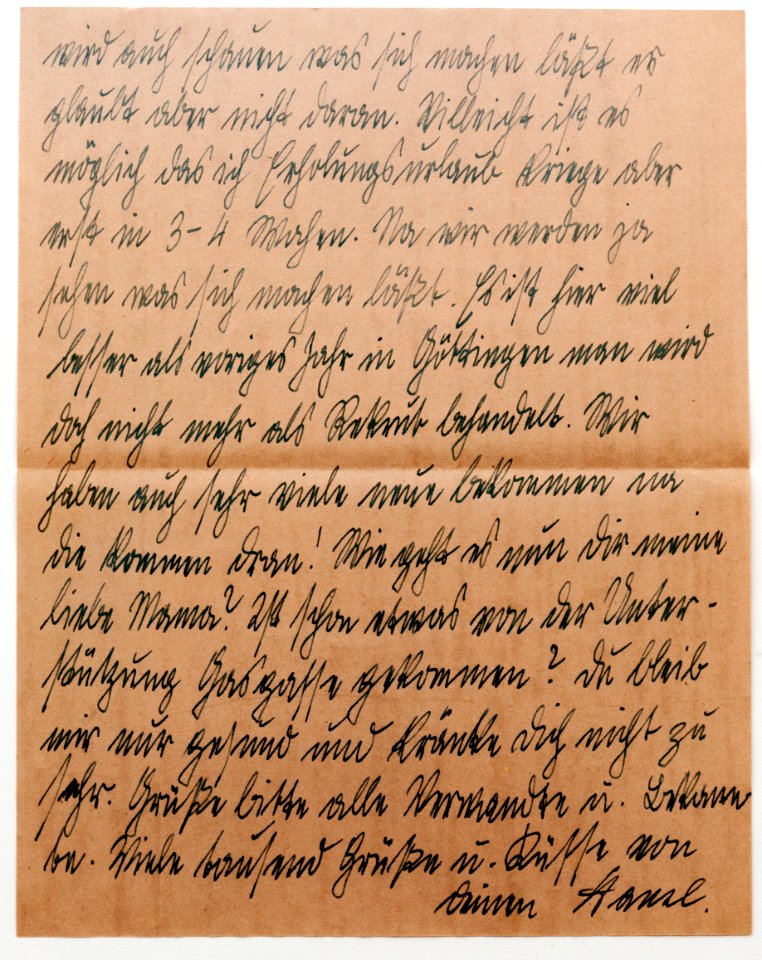 wird auch schauen was sich machen läßt er
glaubt aber nicht daran. Villeicht ist es
möglich das ich Erholungsurlaub kriege aber
erst in 3-4 Wochen. Na wir werden ja
sehen was sich machen läßt. Es ist hier viel
besser als voriges Jahr in Göttingen man wird
doch nicht mehr als Rekrut behandelt. Wir
haben auch sehr viele neue bekommen na
die kommen dran! Wie geht es nun dir meine
liebe Mama? Ist schon etwas von der Unter-
stützung Gasgasse gekommen? Du bleib
mir nur gesund und kränke dich nicht zu
sehr. Grüße bitte alle Verwandte u. Bekann
te. Viele tausend Grüße u. Küsse von
deinen